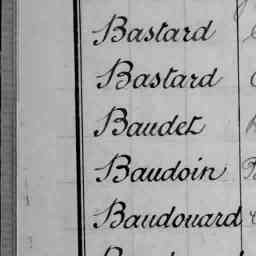 Bastard
Bastard
Baudet
Baudoin
Baudouard